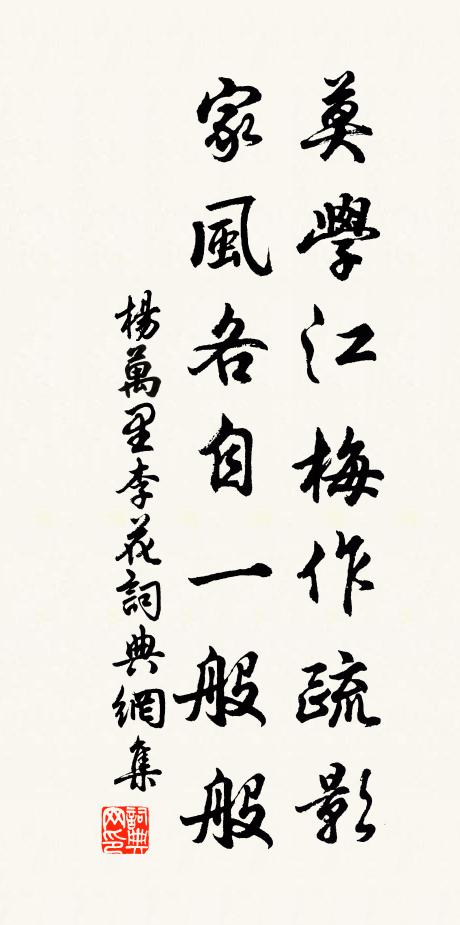 莫學江梅作疏影
家風各自一般般
楊萬里李花詞典網集
詞典網印